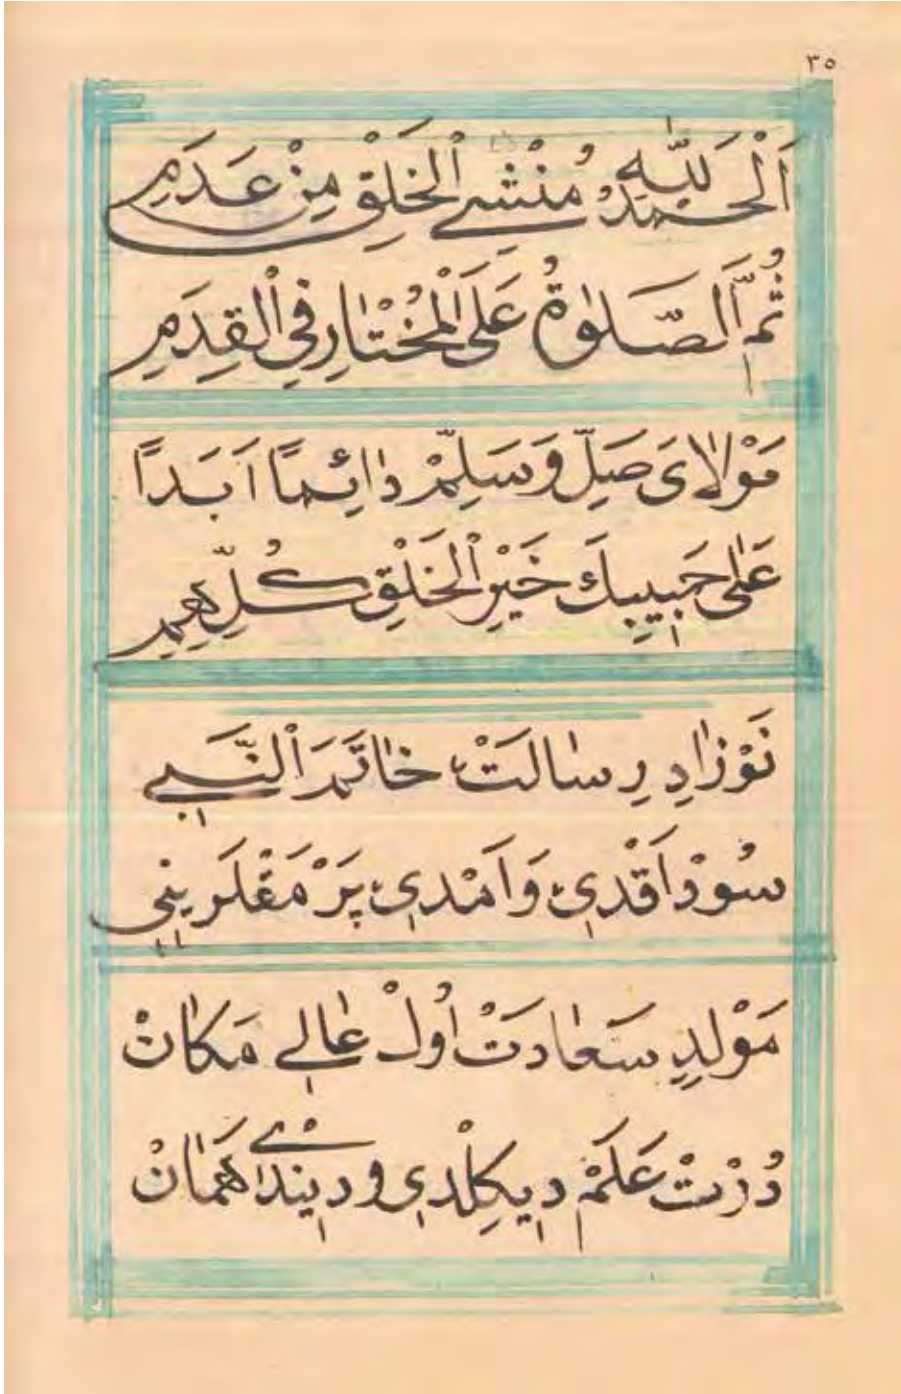 ٣٥
اَلْحَمْدُ لِلّٰهِ مُنْشِئِ الْخَلْقِ مِنْ عَدَمِ
ثُمَّ الصَّلٰوةُ عَلَى الْمُخْتَارِ فِي الْقِدَمِ
مَوْلَايَ صَلِّ وَسَلِّمْ دَائِمًا اَبَدًا
عَلٰى حَبِيبِكَ خَيْرِ الْخَلْقِ كُلِّهِمِ
نَوْزَادِ رِسَالَتْ خَاتَمَ النَّبِي
سُوْد اَقْدِي وَ اَمْدِي پَرْمَقْلَرِينِي
مَوْلِدِ سَعَادَتْ اُولْ عَالِي مَكَانْ
دُرْتْ عَلَمْ دِيكِلْدِي و دِينْدَاهَمَانْ